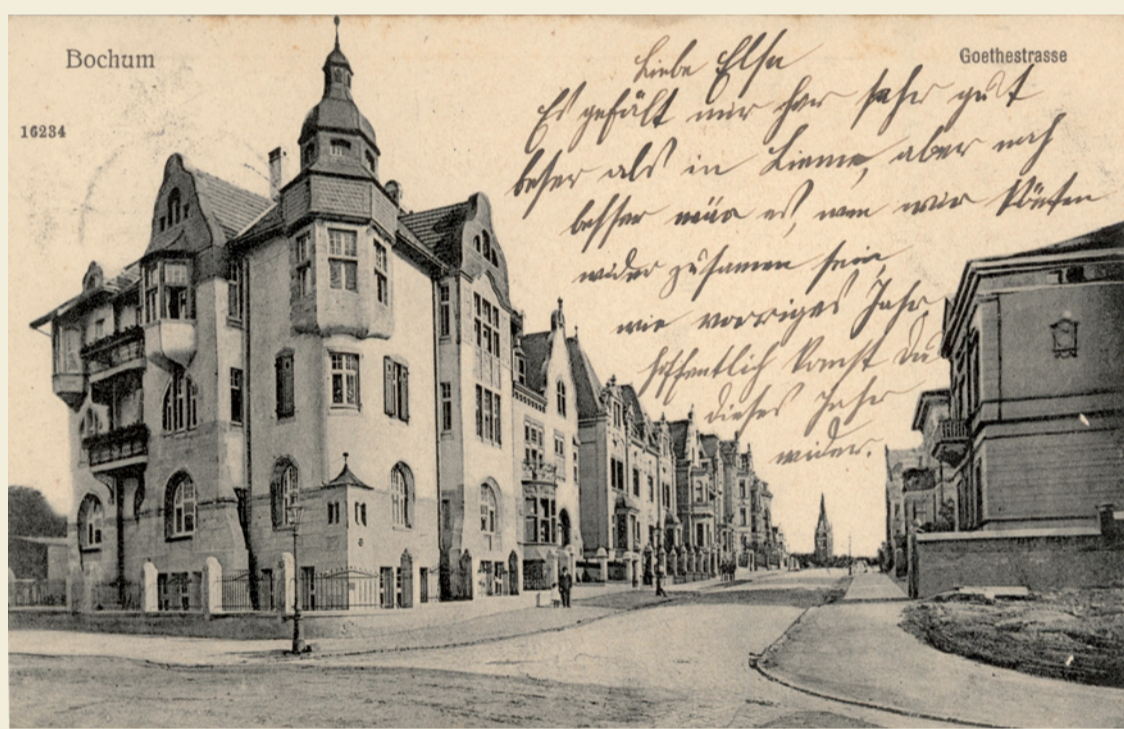 Bochum
Goethestrasse
16234
Liebe Elsa
Es gefält mir her sehr gut
beser als in Lieme, aber noch
besser wär es, wen wir könten
wider zusamen sein,
wie vorriges Jahr
hoffentlich komst Du
dieses Jahr
wider.